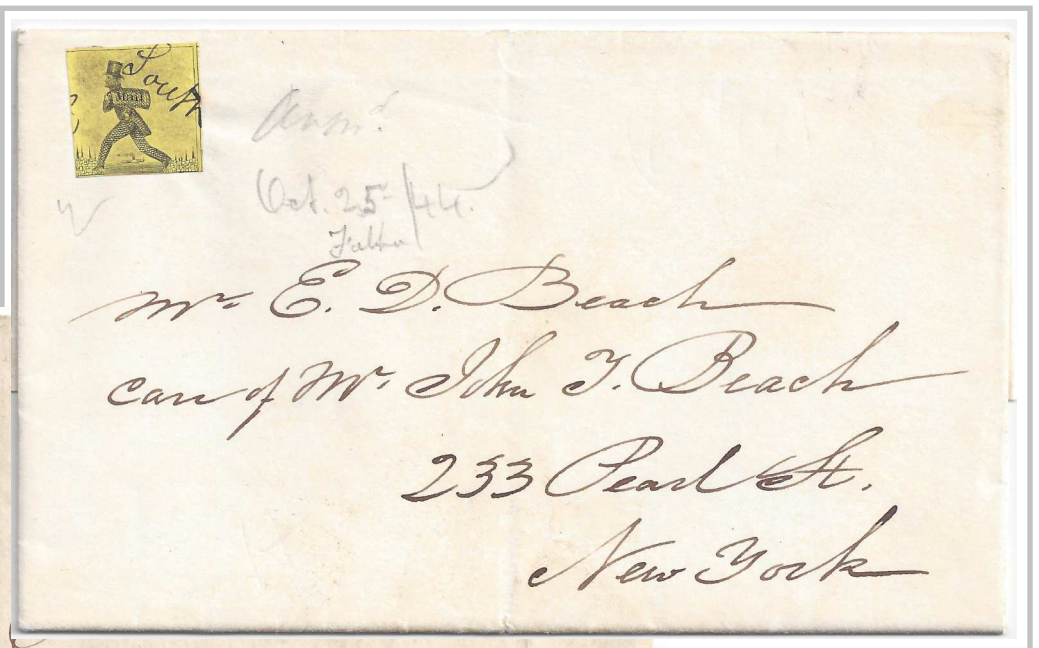 South
Mail
Ansd.
Oct. 25/44.
Mr. E. D. Beach
care of Mr. John T. Beach
233 Pearl St.
New York